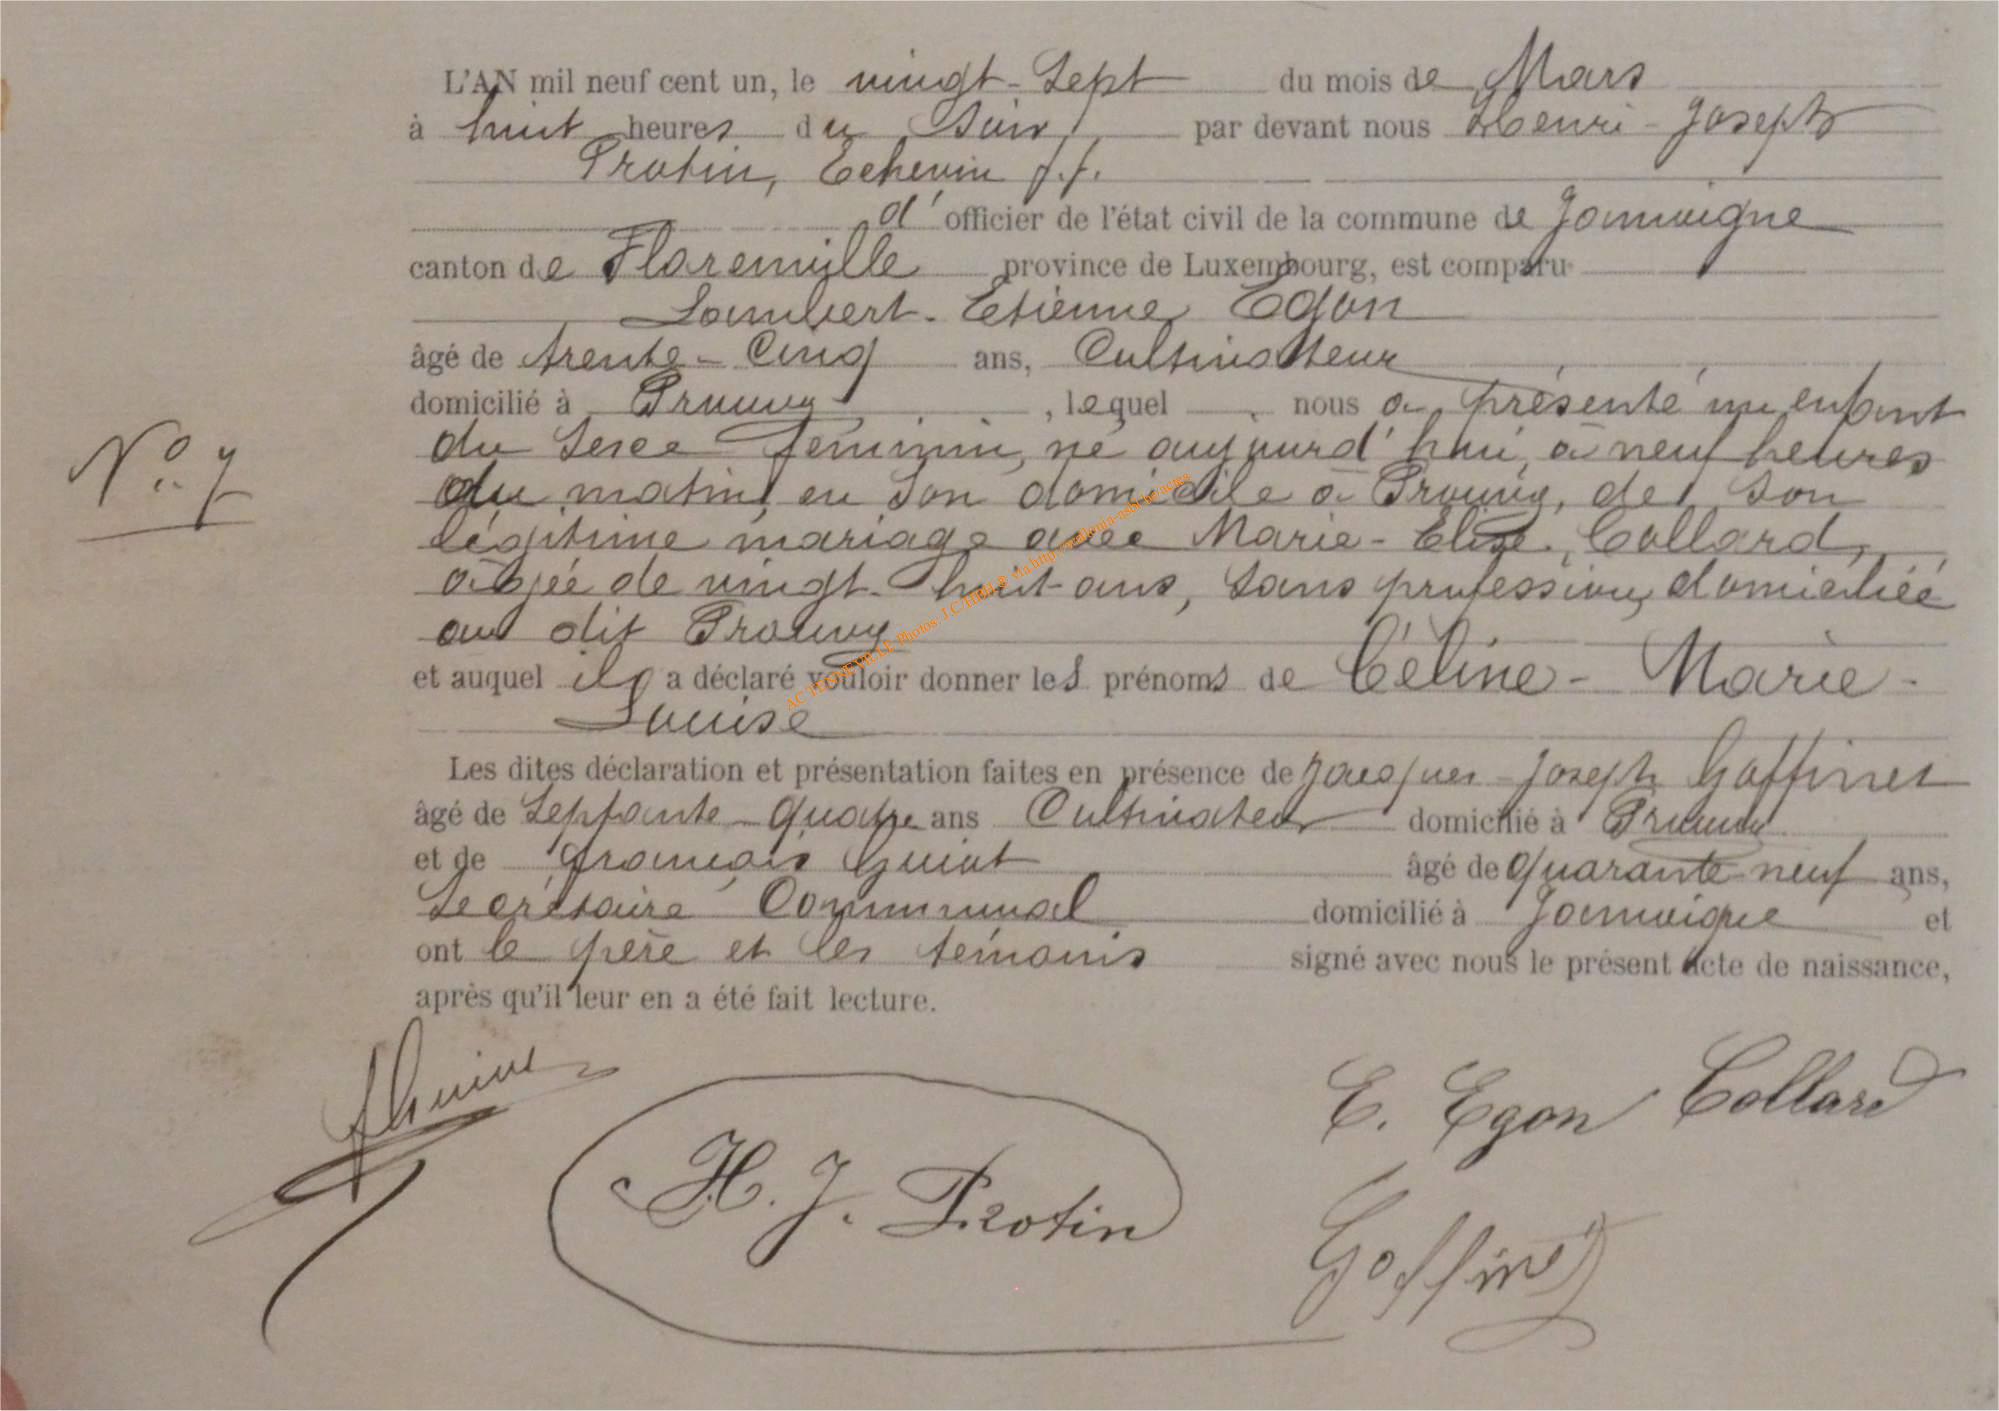 L'AN mil neuf cent un, le vingt-sept du mois de Mars
à huit heures du Soir, par devant nous Henri-Joseph
Protin, Echevin f.f.
d'officier de l'état civil de la commune de Jamoigne
canton de Florenville province de Luxembourg, est comparu
Lambert-Etienne Egon
âgé de trente-Cinq ans, Cultivateur
domicilié à Prouvy, lequel nous a présenté un enfant
du Sexe féminin, né aujourd'hui, à neuf heures
N° 7
du matin, en Son domicile à Prouvy, de Son
légitime mariage avec Marie-Elise Collard,
âgée de vingt-huit ans, Sans profession, domiciliée
au dit Prouvy
et auquel il a déclaré vouloir donner les prénoms de Céline-Marie-
Louise
Les dites déclaration et présentation faites en présence de Jacques-Joseph Goffinet
âgé de Septante-quatre ans Cultivateur domicilié à Prouvy
et de François Guiot âgé de quarante-neuf ans,
Secrétaire Communal domicilié à Jamoigne et
ont le père et les témoins signé avec nous le présent acte de naissance,
après qu'il leur en a été fait lecture.
E. Egon Collard
H. J. Protin
Goffinet